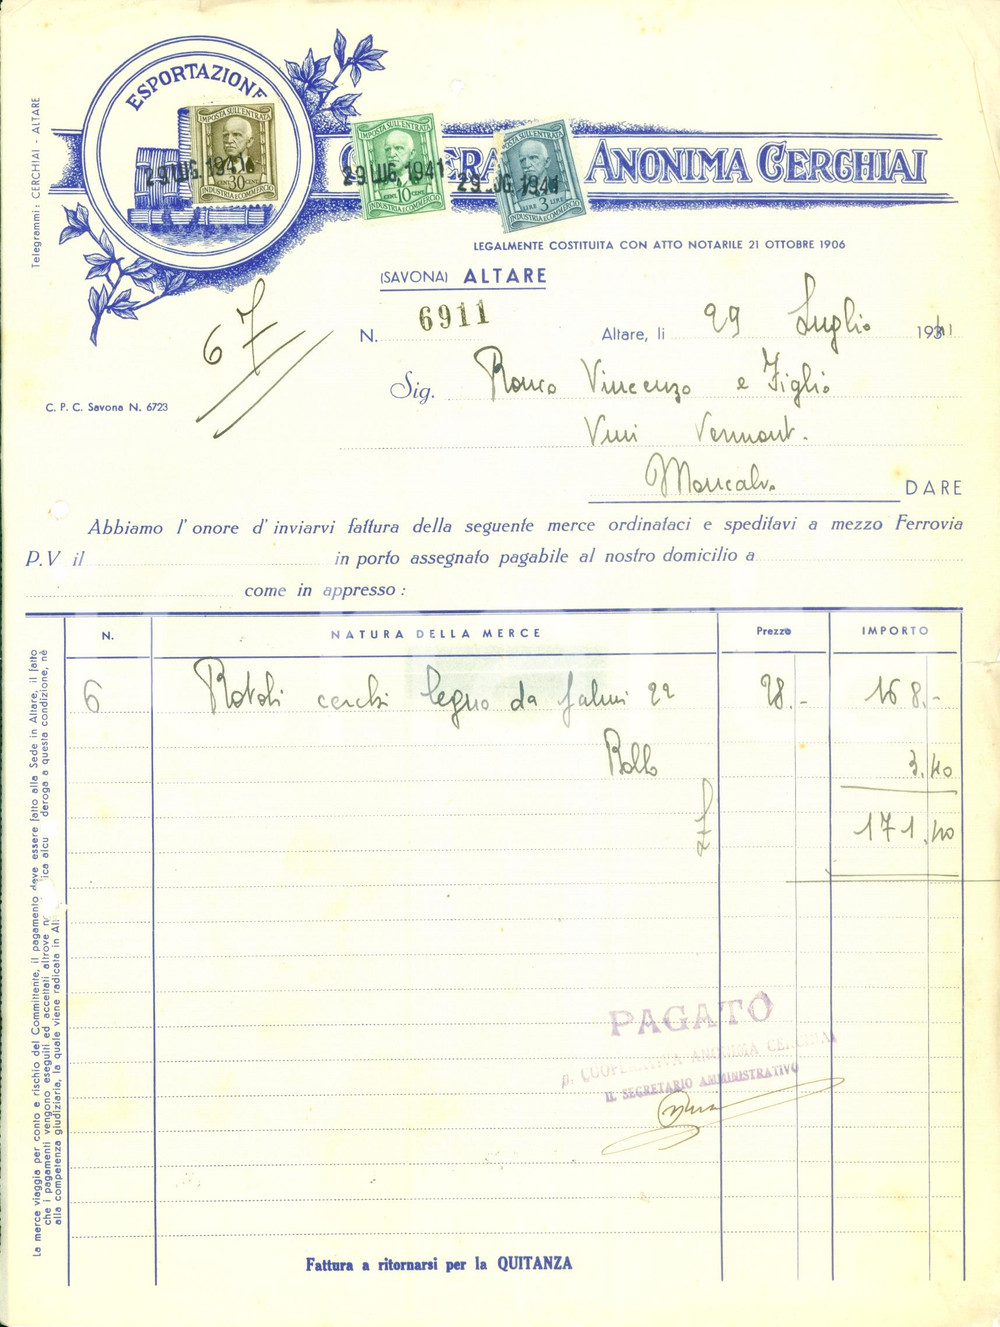 ESPORTAZIONE
ANONIMA CERCHIAI
IMPOSTA SULL'ENTRATA
CENT. 30 CENT.
INDUSTRIA E COMMERCIO
29 LUG. 1941
IMPOSTA SULL'ENTRATA
CENT. 10 CENT.
INDUSTRIA E COMMERCIO
29 LUG. 1941
IMPOSTA SULL'ENTRATA
LIRE 3 LIRE
INDUSTRIA E COMMERCIO
29 LUG. 1941
Telegrammi: CERCHIAI - ALTARE
LEGALMENTE COSTITUITA CON ATTO NOTARILE 21 OTTOBRE 1906
(SAVONA) ALTARE
67
N. 6911
Altare, li 29 Luglio 1941
C. P. C. Savona N. 6723
Sig. Ronco Vincenzo e Figlio
Vini Vermout.
Moncalvo
DARE
Abbiamo l'onore d'inviarvi fattura della seguente merce ordinataci e speditavi a mezzo Ferrovia
P.V il in porto assegnato pagabile al nostro domicilio a
come in appresso :
N. NATURA DELLA MERCE Prezzo IMPORTO
6 Rotoli cerchi legno da 22 28.- 168.-
Bollo 3.40
171.40
PAGATO
p. COOPERATIVA ANONIMA CERCHIAI
IL SEGRETARIO AMMINISTRATIVO
La merce viaggia per conto e rischio del Committente, il pagamento deve essere fatto alla Sede in Altare, il fatto
che i pagamenti vengono eseguiti ed accettati altrove deroga a questa condizione, nè
alla competenza giudiziaria, la quale viene radicata in
Fattura a ritornarsi per la QUITANZA